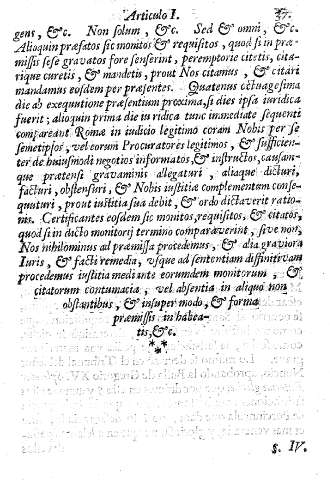 Articulo I. 37.
gens, &c. Non solum, &c. Sed & omni, &c.
Alioquin præfatos sic monitos & requisitos, quod si in præ-
missis sese gravatos fore senserint, peremptorie citetis, cita-
rique curetis, & mandetis, prout Nos citamus, & citari
mandamus eosdem per præsentes. Quatenus octuagesima
die ab exequutione præsentium proxima, si dies ipsa iuridica
fuerit; alioquin prima die iuridica tunc immediate sequenti
compareant Romæ in iudicio legitimo coram Nobis per se
semetipsos, vel eorum Procuratores legitimos, & sufficien-
ter de huiusmodi negotios informatos, & instructos, causam-
que prætensi gravaminis allegaturi, aliaque dicturi,
facturi, obstensuri, & Nobis iustitiæ complementum conse-
quuturi, prout iustitia sua debit, & ordo dictaverit ratio-
nis. Certificantes eosdem sic monitos, requisitos, & citatos,
quod si in dicto monitorij termino comparaverint, sive non,
Nos nihilominus ad præmissa procedemus, & alia graviora
Iuris, & facti remedia, usque ad sententiam diffinitivam
procedemus iustitia mediante eorundem monitorum, &
citatorum contumacia, vel absentia in aliquo non
obstantibus, & insuper modo, & forma
præmissis in habea-
tis, &c.
***
§. IV.